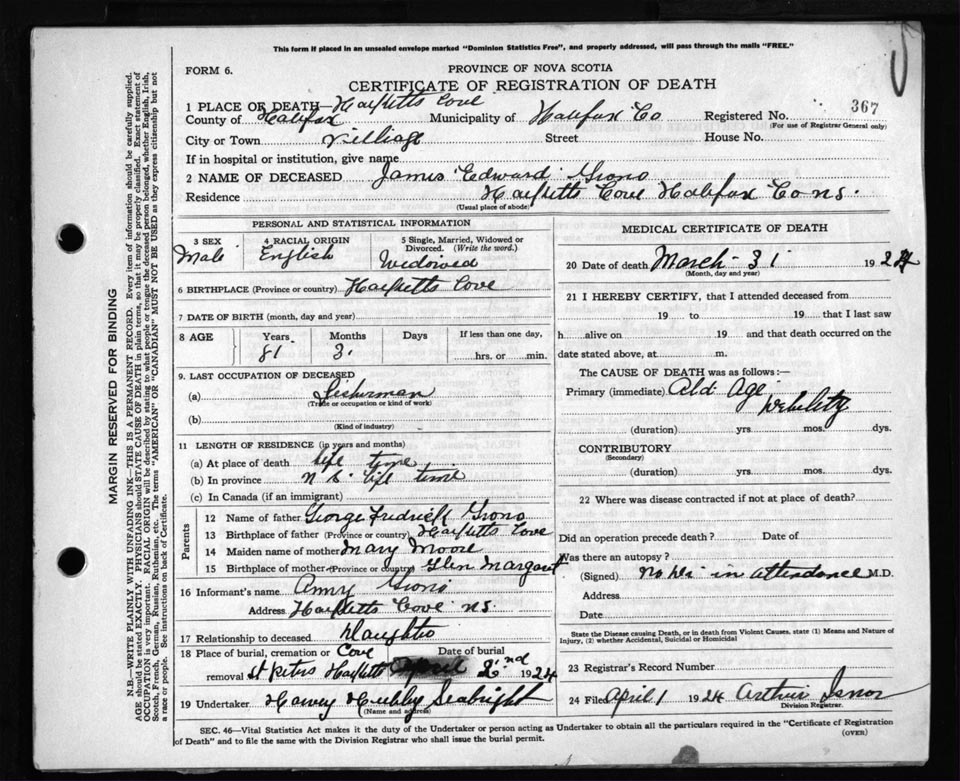 This form if placed in an unsealed envelope marked "Dominion Statistics Free", and properly addressed, will pass through the mails "FREE."
FORM 6.
PROVINCE OF NOVA SCOTIA
CERTIFICATE OF REGISTRATION OF DEATH
367
1 PLACE OF DEATH Hacketts Cove
County of Halifax Municipality of Halifax Co Registered No.
(For use of Registrar General only)
City or Town Village Street House No.
If in hospital or institution, give name
2 NAME OF DECEASED James Edward Grono
Residence Hacketts Cove Halifax Co N.S.
(Usual place of abode)
PERSONAL AND STATISTICAL INFORMATION
3 SEX 4 RACIAL ORIGIN 5 Single, Married, Widowed or Divorced. (Write the word.)
Male English Widowed
6 BIRTHPLACE (Province or country) Hacketts Cove
7 DATE OF BIRTH (month, day and year)
8 AGE Years Months Days If less than one day,
81 3 hrs. or min.
9. LAST OCCUPATION OF DECEASED
(a) Fisherman
(Trade or occupation or kind of work)
(b)
(Kind of industry)
11 LENGTH OF RESIDENCE (in years and months)
(a) At place of death life time
(b) In province N S life time
(c) In Canada (if an immigrant)
Parents
12 Name of father George Fredrick Grono
13 Birthplace of father (Province or country) Hacketts Cove
14 Maiden name of mother Mary Moore
15 Birthplace of mother (Province or country) Glen Margaret
16 Informant's name Grono
Address Hacketts Cove N.S.
17 Relationship to deceased Daughter
18 Place of burial, cremation or Cove Date of burial
removal St Peters Hacketts 2nd 1924
19 Undertaker Harvey Hubley Seabright
(Name and address)
MEDICAL CERTIFICATE OF DEATH
20 Date of death March 31 1924
(Month, day and year)
21 I HEREBY CERTIFY, that I attended deceased from
19 to 19 that I last saw
h alive on 19 and that death occurred on the
date stated above, at m.
The CAUSE OF DEATH was as follows:—
Primary (immediate) Old Age
Debility
(duration) yrs. mos. dys.
CONTRIBUTORY
(Secondary)
(duration) yrs. mos. dys.
22 Where was disease contracted if not at place of death?
Did an operation precede death? Date of
Was there an autopsy?
(Signed) in attendance M.D.
Address
Date
State the Disease causing Death, or in death from Violent Causes, state (1) Means and Nature of
Injury, (2) whether Accidental, Suicidal or Homicidal
23 Registrar's Record Number
24 Filed April 1 1924 Arthur Isnor
Division Registrar.
SEC. 46—Vital Statistics Act makes it the duty of the Undertaker or person acting as Undertaker to obtain all the particulars required in the "Certificate of Registration
of Death" and to file the same with the Division Registrar who shall issue the burial permit.
(OVER)
MARGIN RESERVED FOR BINDING
N.B.—WRITE PLAINLY WITH UNFADING INK—THIS IS A PERMANENT RECORD. Every item of information should be carefully supplied.
AGE should be stated EXACTLY. PHYSICIANS should STATE CAUSE OF DEATH in plain terms, so that it may be properly classified. Exact statement of
OCCUPATION is very important. RACIAL ORIGIN will be described by stating to what people or tongue the deceased person belonged, whether English, Irish,
Scotch, French, German, Russian, Ruthenian, etc. The terms "AMERICAN" OR "CANADIAN" MUST NOT BE USED as they express citizenship but not
a race or people. See instructions on back of Certificate.